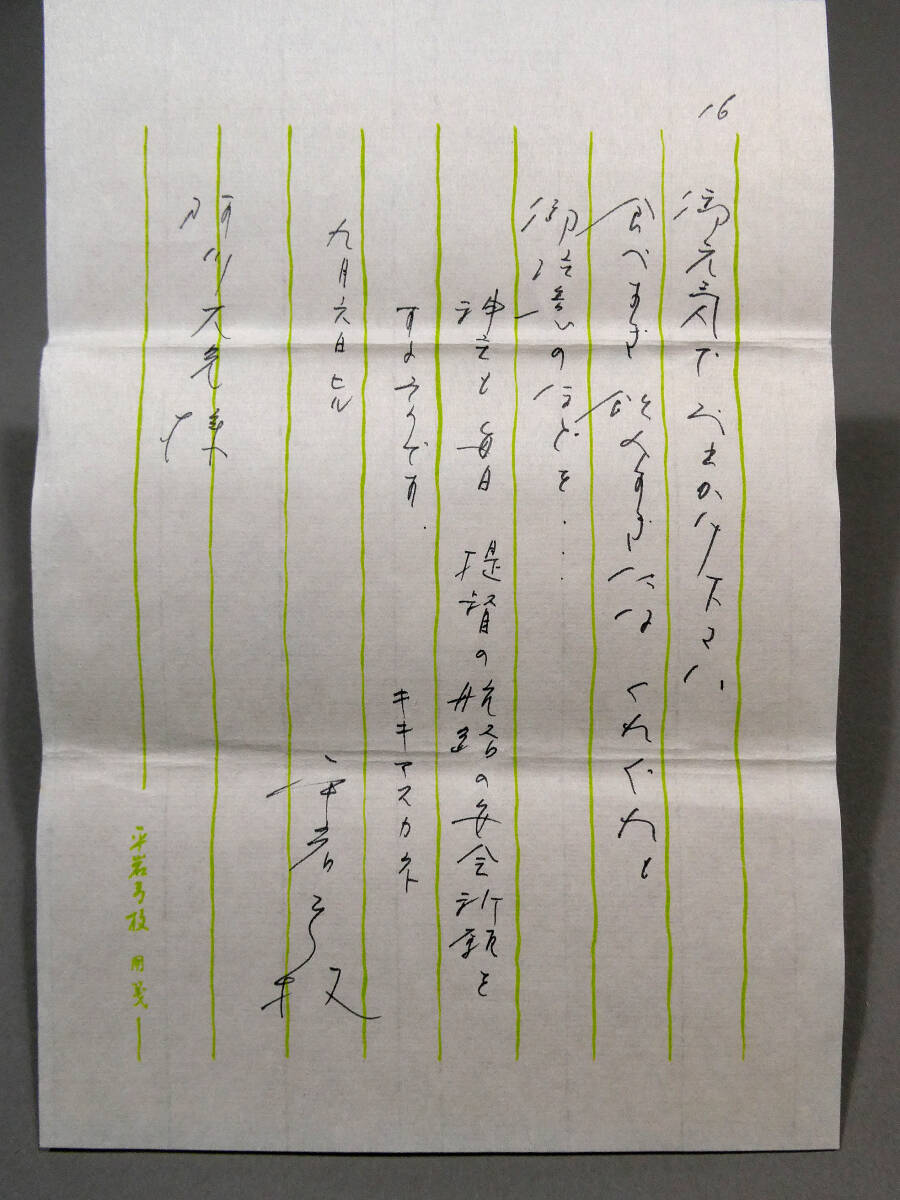 16
御元気で お出かけ下さい、
食べすぎ 飲みすぎには くれぐれも
御注意のほどを・・・
神主も 毎日 提督の航路の安全祈願を
するそうです. キキマスカネ
九月六日 ヒル
平岩弓枝
阿川大兄様
平岩弓枝 用箋